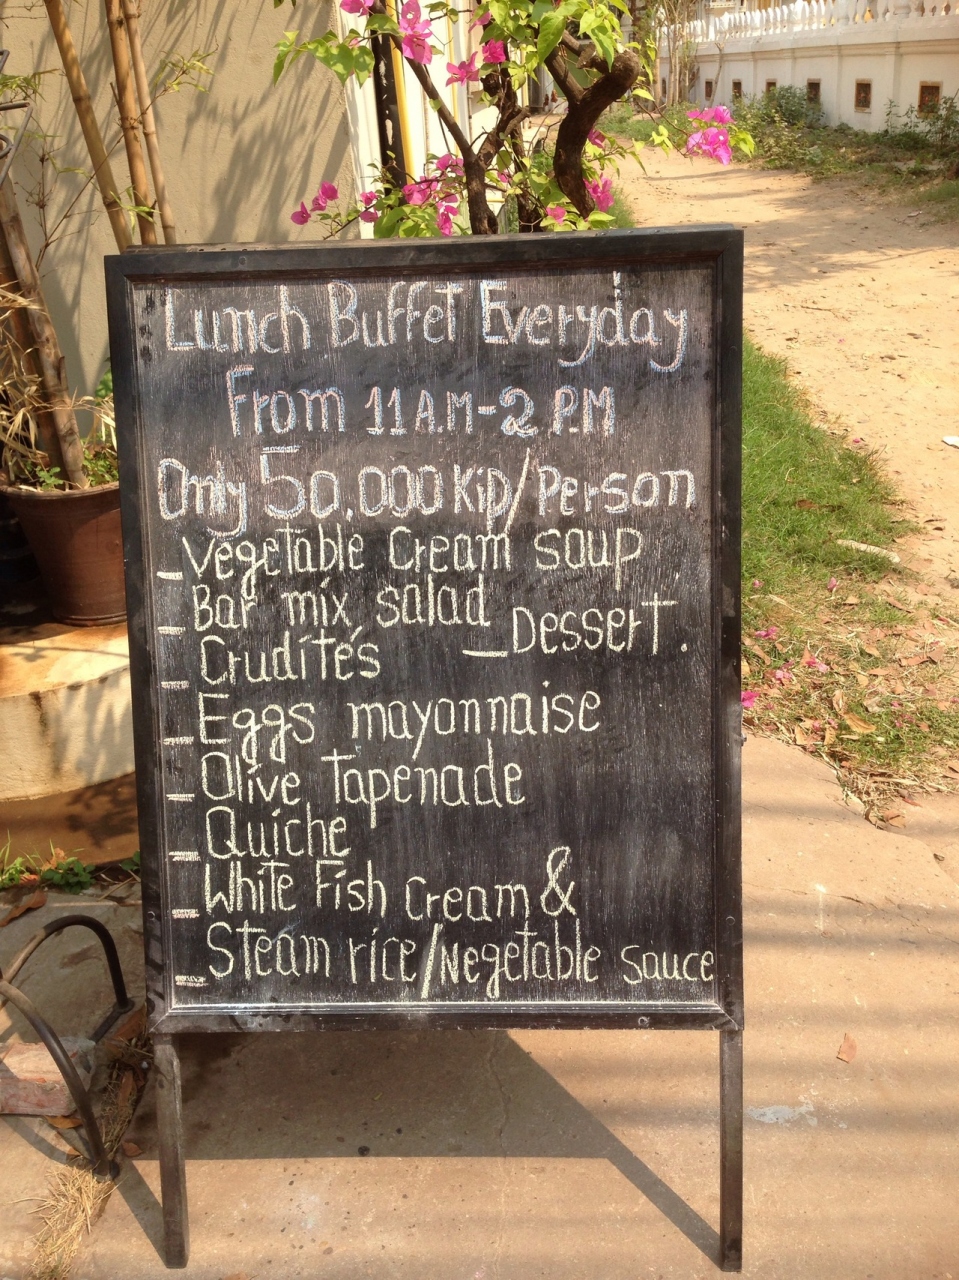 Lunch Buffet Everyday
From 11 A.M-2 P.M
Only 50.000 Kip/Person
- Vegetable Cream soup
- Bar mix salad
- Dessert.
- Crudités
- Eggs mayonnaise
- Olive Tapenade
- Quiche
- White Fish Cream &
- Steam rice/Vegetable sauce